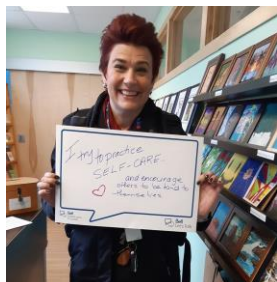 I try to practice
SELF-CARE.
and encourage
others to be kind to
themselves
Bell